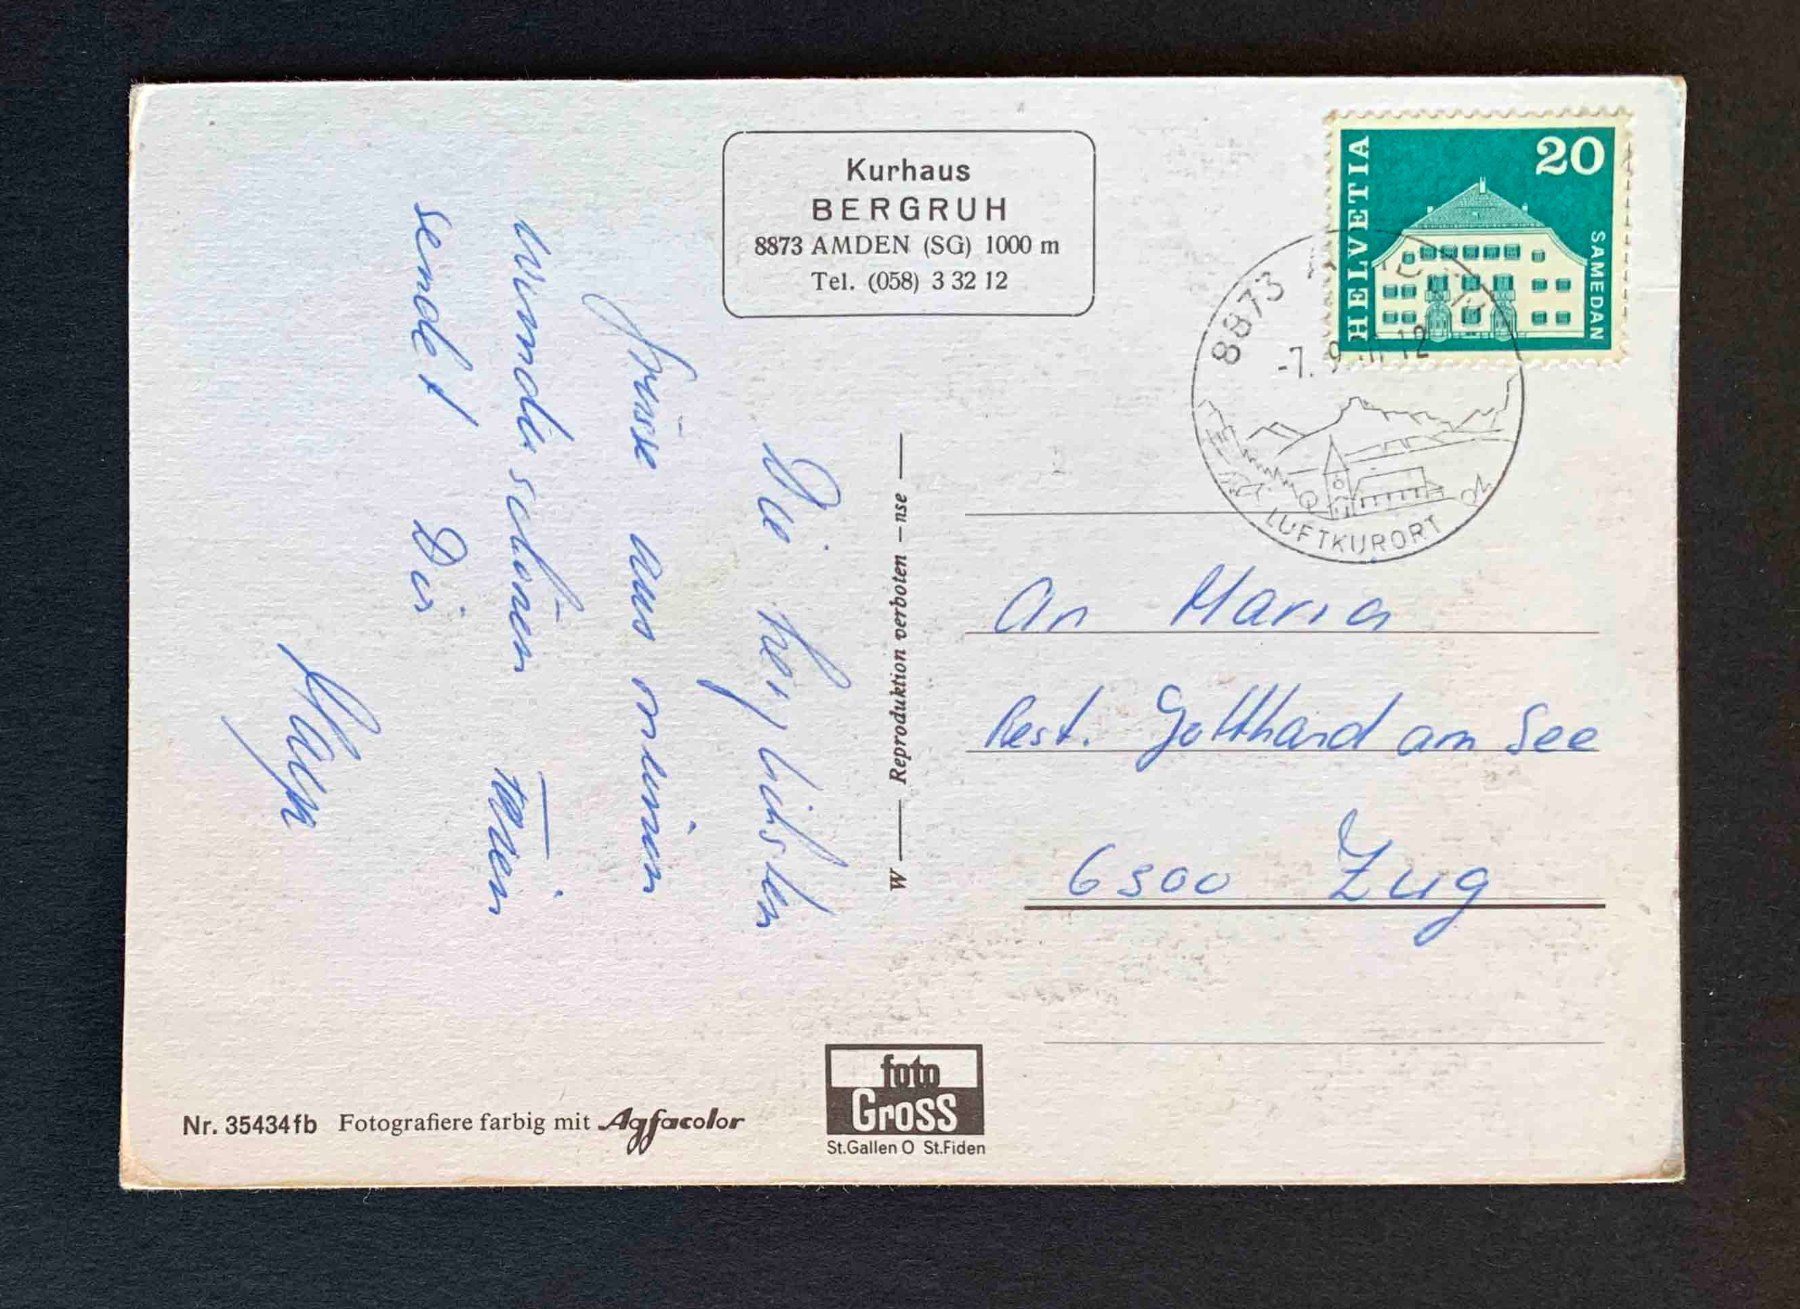 Kurhaus
BERGRUH
8873 AMDEN (SG) 1000 m
Tel. (058) 3 32 12
HELVETIA
20
SAMEDAN
8873
-7. 9 12
LUFTKURORT
Die herzlichsten
Grüsse aus meinen
Wunderschönen Ferien
sendet Dir
W — Reproduktion verboten – nse —
An Maria
Rest. Gotthard am See
6300 Zug
Nr. 35434fb Fotografiere farbig mit Agfacolor
foto
GROSS
St.Gallen O St.Fiden